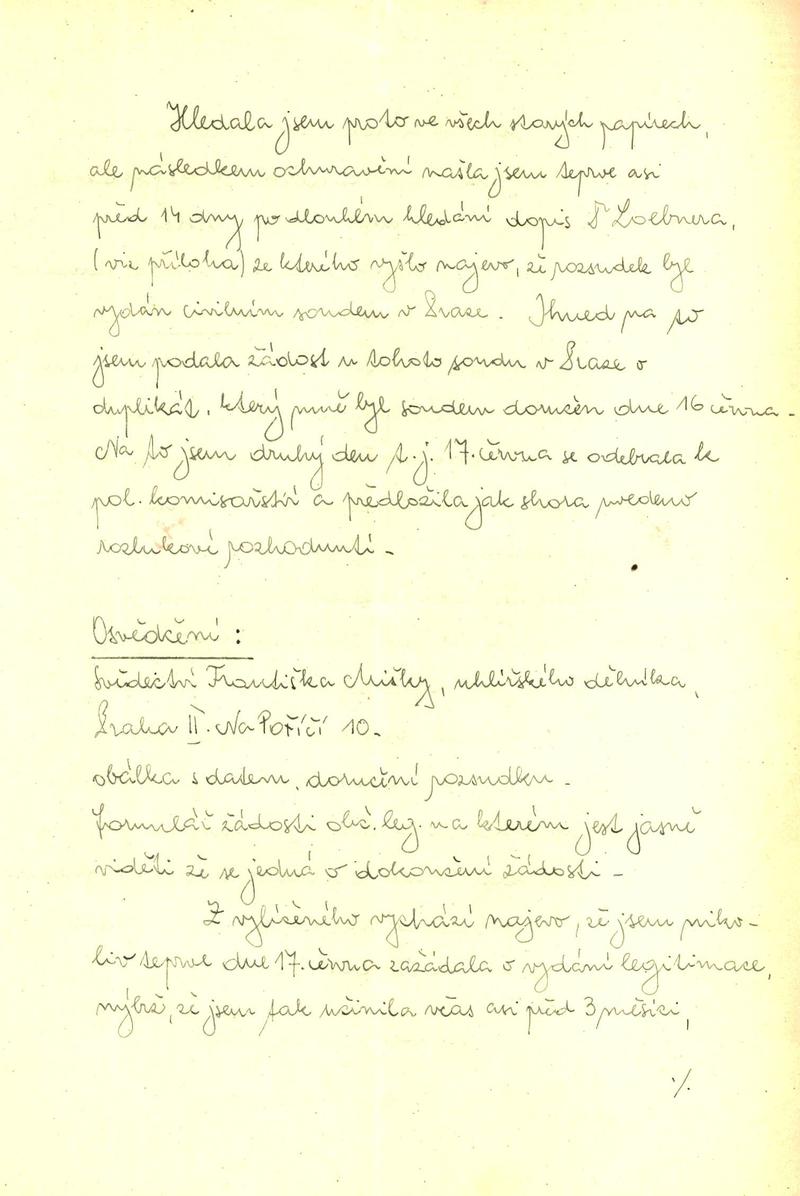 Hledala jsem proto ve všech starých papírech,
ale následkem ochuravění našla jsem teprve asi
před 14 dny po dlouhém hledání dopis Dr Zoelnera,
(viz příloha) ze kterého vyšlo najevo, že rozsudek byl
vydán civilním soudem v Praze. Ihned na to
jsem podala žádost u tohoto soudu v Praze o
duplikát, který mně byl soudem doručen dne 16 června.
Na to jsem druhý den t.j. 17. června se odebrala k
pol. komisařství a předložila jak shora uvedeno
rozlukové rozhodnutí.
Osvědčení :
Svědectví Františka , uhlířského dělníka,
Praha II. Na Poříčí 10.
obálka s datem, doručení rozsudku.
Formulář žádosti obč. leg. na kterém jest jasně
viděti že se jedná o dokončení žádosti.
Z vylíčeného vychází najevo, že jsem niko-
liv teprve dne 17. června zažádala o vydání legitimace,
nýbrž, že jsem tak učinila včas asi před 3 měsíci,
·/.